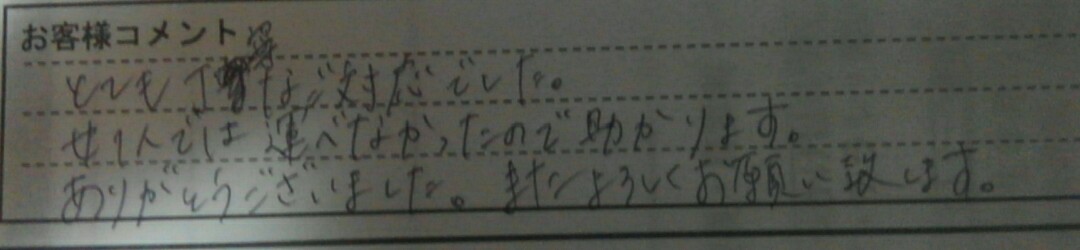 お客様コメント
とても丁寧なご対応でした。
女1人では運べなかったので助かります。
ありがとうございました。またよろしくお願い致します。